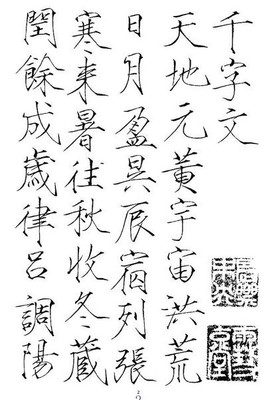 千字文
天地元黄宇宙洪荒
日月盈昃辰宿列張
寒來暑往秋收冬藏
閏餘成歲律呂調陽